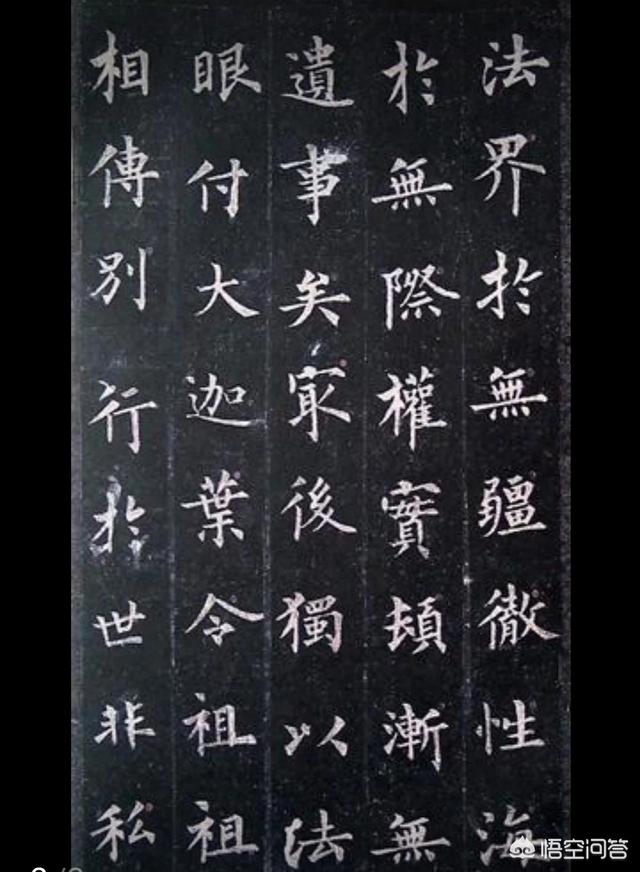 法界於無疆徹性海
於無際權實頓漸無
遺事矣㝡後獨以法
眼付大迦葉令祖祖
相傳別行於世非私
悟空问答